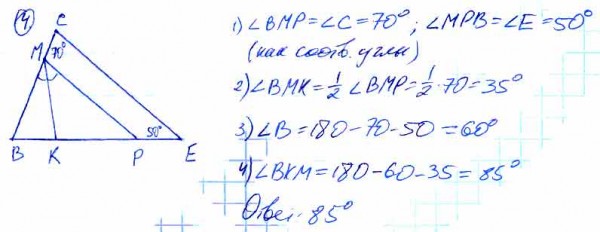 4
C
M 70°
50°
B K P E
1) ∠BMP=∠C=70°; ∠MPB=∠E=50°
(как соотв. углы)
2) ∠BMK=1/2 ∠BMP=1/2·70=35°
3) ∠B=180-70-50=60°
4) ∠BKM=180-60-35=85°
Ответ: 85°